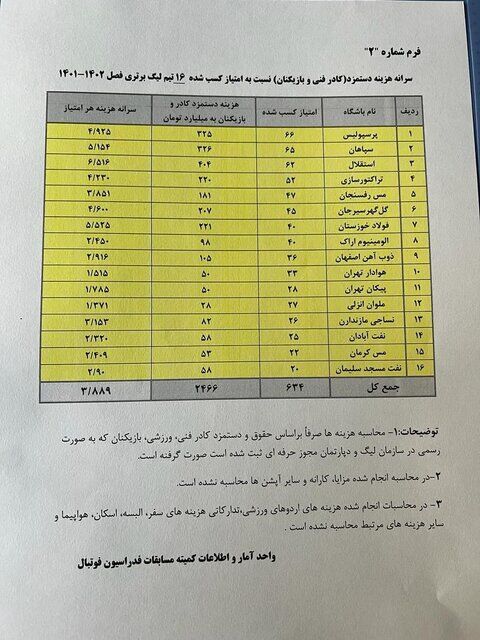 فرم شماره "۲"
سرانه هزینه دستمزد(کادر فنی و بازیکنان) نسبت به امتیاز کسب شده ۱۶ تیم لیگ برتری فصل ۱۴۰۲–۱۴۰۱
ردیف نام باشگاه امتیاز کسب شده هزینه دستمزد کادر و بازیکنان به میلیارد تومان سرانه هزینه هر امتیاز
۱ پرسپولیس ۶۶ ۳۲۵ ۴/۹۲۵
۲ سپاهان ۶۵ ۳۲۶ ۵/۱۵۴
۳ استقلال ۶۲ ۴۰۴ ۶/۵۱۶
۴ تراکتورسازی ۵۲ ۲۲۰ ۴/۲۳۰
۵ مس رفسنجان ۴۷ ۱۸۱ ۳/۸۵۱
۶ گل‌گهرسیرجان ۴۵ ۲۰۷ ۴/۶۰۰
۷ فولاد خوزستان ۴۰ ۲۲۱ ۵/۵۲۵
۸ الومینیوم اراک ۴۰ ۹۸ ۲/۴۵۰
۹ ذوب آهن اصفهان ۳۶ ۱۰۵ ۲/۹۱۶
۱۰ هوادار تهران ۳۳ ۵۰ ۱/۵۱۵
۱۱ پیکان تهران ۲۸ ۵۰ ۱/۷۸۵
۱۲ ملوان انزلی ۲۷ ۲۸ ۱/۳۷۱
۱۳ نساجی مازندارن ۲۶ ۸۲ ۳/۱۵۳
۱۴ نفت آبادان ۲۵ ۵۸ ۲/۳۲۰
۱۵ مس کرمان ۲۲ ۵۳ ۲/۴۰۹
۱۶ نفت مسجد سلیمان ۲۰ ۵۸ ۲/۹۰
جمع کل ۶۳۴ ۲۴۶۶ ۳/۸۸۹
توضیحات:۱- محاسبه هزینه ها صرفاً براساس حقوق و دستمزد کادر فنی، ورزشی، بازیکنان که به صورت
رسمی در سازمان لیگ و دپارتمان مجوز حرفه ای ثبت شده است صورت گرفته است.
۲-در محاسبه انجام شده مزایا، کارانه و سایر آپشن ها محاسبه نشده است.
۳- در محاسبات انجام شده هزینه های اردوهای ورزشی،تدارکاتی هزینه های سفر، البسه، اسکان، هواپیما و
سایر هزینه های مرتبط محاسبه نشده است .
واحد آمار و اطلاعات کمیته مسابقات فدراسیون فوتبال